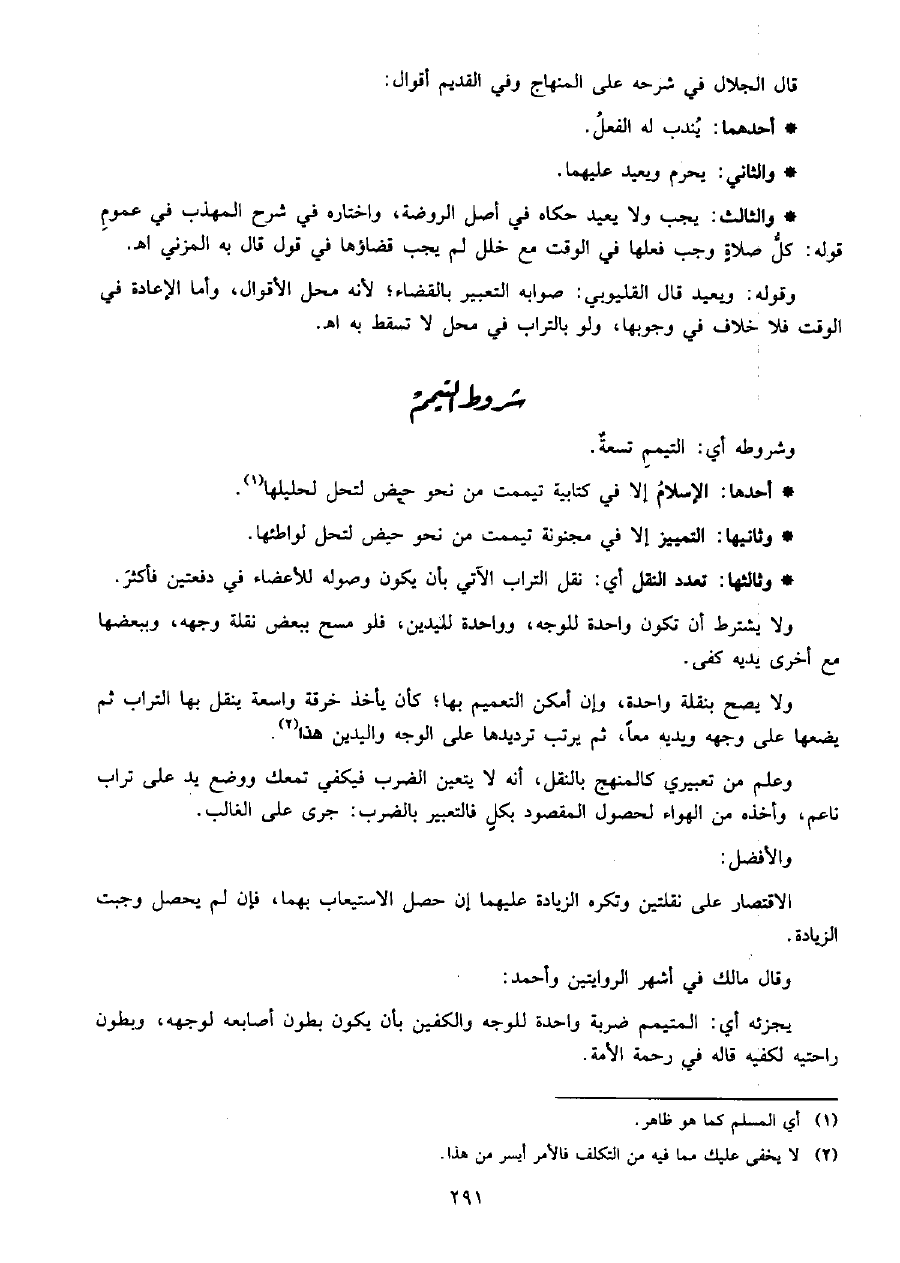 قال الجلال في شرحه على المنهاج وفي القديم أقوال:
* أحدهما: يُندب له الفعلُ.
* والثاني: يحرم ويعيد عليهما.
* والثالث: يجب ولا يعيد حكاه في أصل الروضة، واختاره في شرح المهذب في عمومِ
قوله: كلُّ صلاةٍ وجب فعلها في الوقت مع خلل لم يجب قضاؤها في قول قال به المزني اهـ.
وقوله: ويعيد قال القليوبي: صوابه التعبير بالقضاء؛ لأنه محل الأقوال، وأما الإعادة في
الوقت فلا خلاف في وجوبها، ولو بالتراب في محل لا تسقط به اهـ.
شروط التيمم
وشروطه أي: التيممِ تسعةٌ.
* أحدها: الإسلامُ إلا في كتابية تيممت من نحو حيض لتحل لحليلها(١).
* وثانيها: التمييز إلا في مجنونة تيممت من نحو حيض لتحل لواطئها.
* وثالثها: تعدد النقل أي: نقل التراب الآتي بأن يكون وصوله للأعضاء في دفعتين فأكثرَ.
ولا يشترط أن تكون واحدة للوجه، وواحدة لليدين، فلو مسح ببعض نقلة وجهه، وببعضها
مع أخرى يديه كفى.
ولا يصح بنقلة واحدة، وإن أمكن التعميم بها؛ كأن يأخذ خرقة واسعة ينقل بها التراب ثم
يضعها على وجهه ويديه معاً، ثم يرتب ترديدها على الوجه واليدين هذا(٢).
وعلم من تعبيري كالمنهج بالنقل، أنه لا يتعين الضرب فيكفي تمعك ووضع يد على تراب
ناعم، وأخذه من الهواء لحصول المقصود بكلٍ فالتعبير بالضرب: جرى على الغالب.
والأفضل:
الاقتصار على نقلتين وتكره الزيادة عليهما إن حصل الاستيعاب بهما، فإن لم يحصل وجبت
الزيادة.
وقال مالك في أشهر الروايتين وأحمد:
يجزئه أي: المتيمم ضربة واحدة للوجه والكفين بأن يكون بطون أصابعه لوجهه، وبطون
راحتيه لكفيه قاله في رحمة الأمة.
(١) أي المسلم كما هو ظاهر.
(٢) لا يخفى عليك مما فيه من التكلف فالأمر أيسر من هذا.
٢٩١